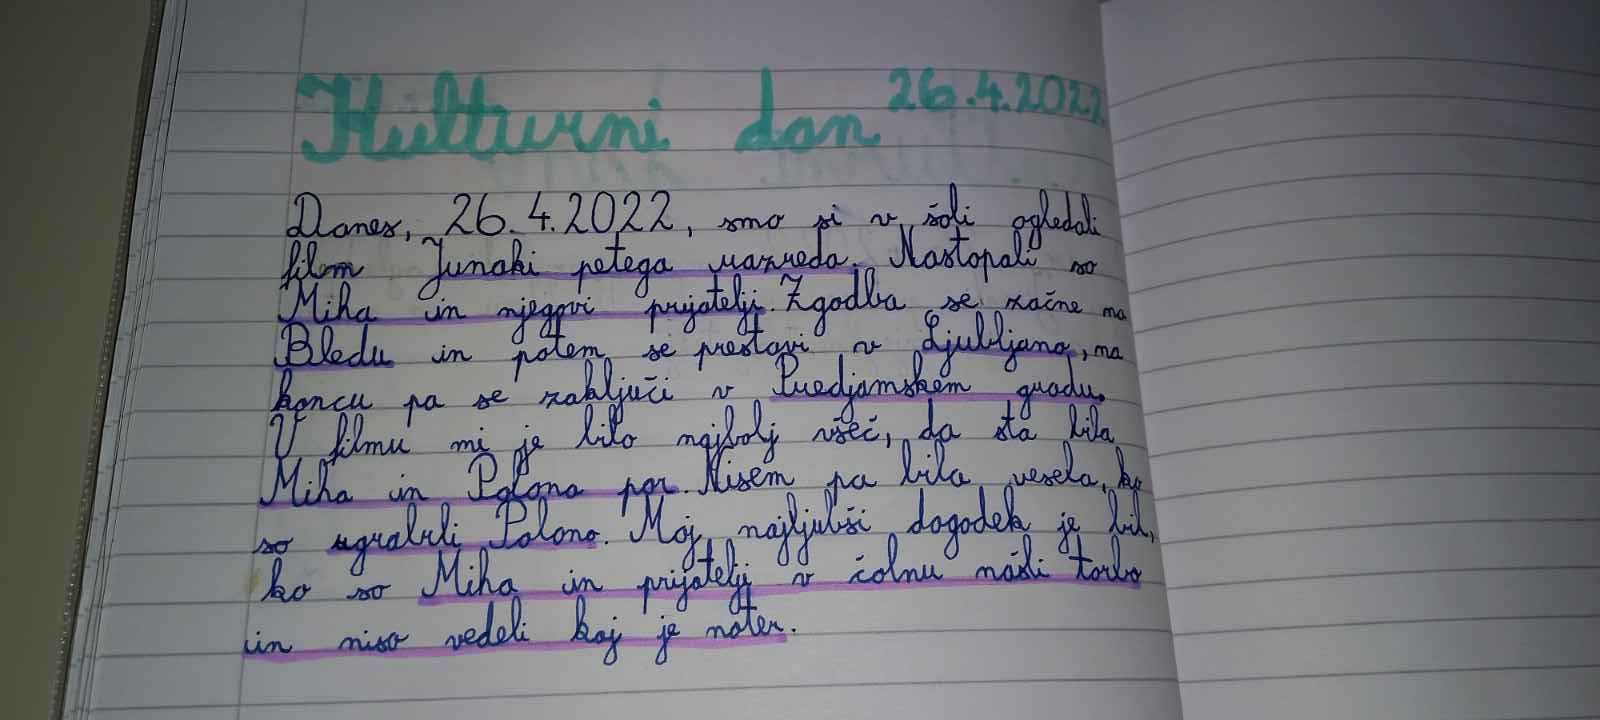 Kulturni dan 26.4.2022
Danes, 26.4.2022, smo si v šoli ogledali
film Junaki petega razreda. Nastopali so
Miha in njegovi prijatelji. Zgodba se začne na
Bledu in potem se prestavi v Ljubljano, na
koncu pa se zaključi v Predjamskem gradu.
V filmu mi je bilo najbolj všeč, da sta bila
Miha in Polona par. Nisem pa bila vesela, ko
so ugrabili Polono. Moj najljubši dogodek je bil,
ko so Miha in prijatelji v čolnu našli torbo
in niso vedeli kaj je noter.